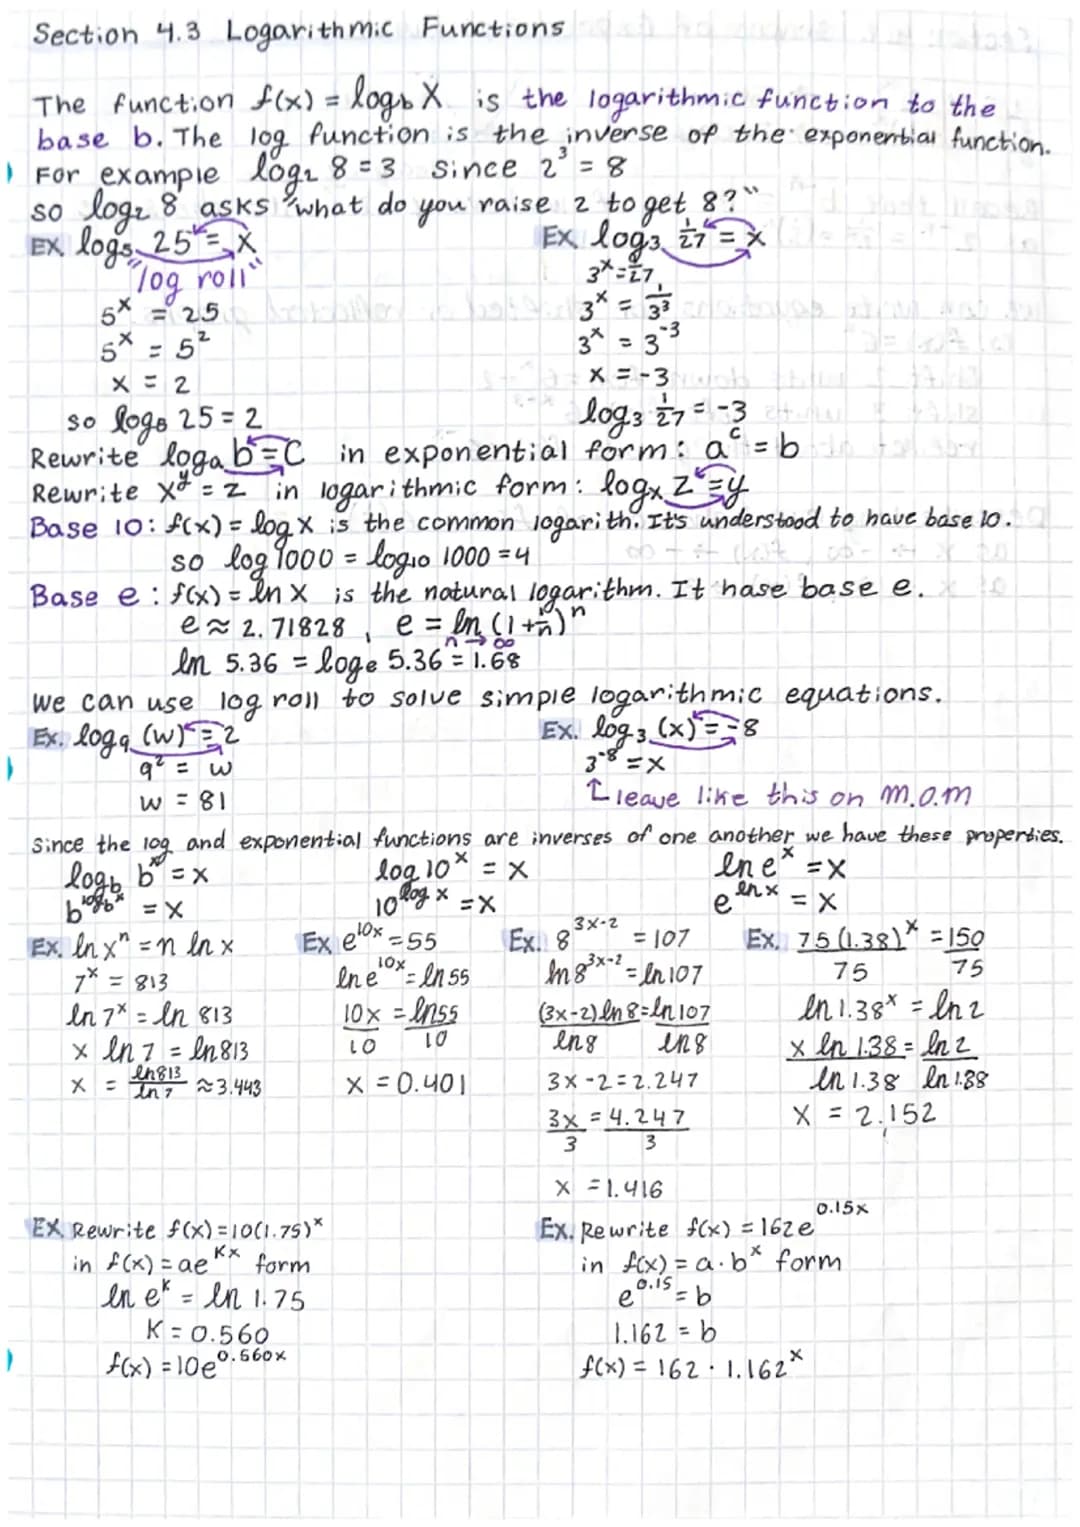 Section 4.3 Logarithmic Functions
The function f(x) = log_b X is the logarithmic function to the
base b. The log function is the inverse of the exponential function.
For example log₂ 8 = 3 since 2³ = 8
so log₂ 8 asks "what do you raise 2 to get 8?"
EX log₅ 25 = X
"log roll"
5ˣ = 25
5ˣ = 5²
x = 2
so log₅ 25 = 2
EX. log₃ 1/27 = x
3ˣ = 1/27
3ˣ = 1/3³
3ˣ = 3⁻³
x = -3
log₃ 1/27 = -3
Rewrite logₐ b = C in exponential form: a^c = b
Rewrite x^y = z in logarithmic form: logₓ z = y
Base 10: f(x) = log x is the common logarith. It's understood to have base 10.
so log 1000 = log₁₀ 1000 = 4
Base e: f(x) = ln x is the natural logarithm. It hase base e.
e ≈ 2.71828, e = ln (1 + 1/n)ⁿ
n → ∞
ln 5.36 = logₑ 5.36 = 1.68
we can use log roll to solve simple logarithmic equations.
Ex. log₉ (w) = 2
9² = w
w = 81
Ex. log₃ (x) = -8
3⁻⁸ = x
↑ leave like this on m.o.m
Since the log and exponential functions are inverses of one another we have these properties.
log_b bˣ = x
b^(log_b x) = x
log 10ˣ = x
10^(log x) = x
ln eˣ = x
e^(ln x) = x
Ex. ln xⁿ = n ln x
7ˣ = 813
ln 7ˣ = ln 813
x ln 7 = ln 813
x = ln 813/ln 7 ≈ 3.443
Ex e^(10x) = 55
ln e^(10x) = ln 55
10x = ln 55
10 10
x = 0.401
Ex. 8^(3x-2) = 107
ln 8^(3x-2) = ln 107
(3x-2) ln 8 = ln 107
ln 8 ln 8
3x - 2 = 2.247
3x = 4.247
3 3
x = 1.416
Ex. 75 (1.38)ˣ = 150
75 75
ln 1.38ˣ = ln 2
x ln 1.38 = ln 2
ln 1.38 ln 1.38
x = 2.152
EX. Rewrite f(x) = 10(1.75)ˣ
in f(x) = ae^(Kx) form
ln e^k = ln 1.75
K = 0.560
f(x) = 10e^(0.560x)
Ex. Rewrite f(x) = 162e^(0.15x)
in f(x) = a · bˣ form
e^(0.15) = b
1.162 = b
f(x) = 162 · 1.162ˣ